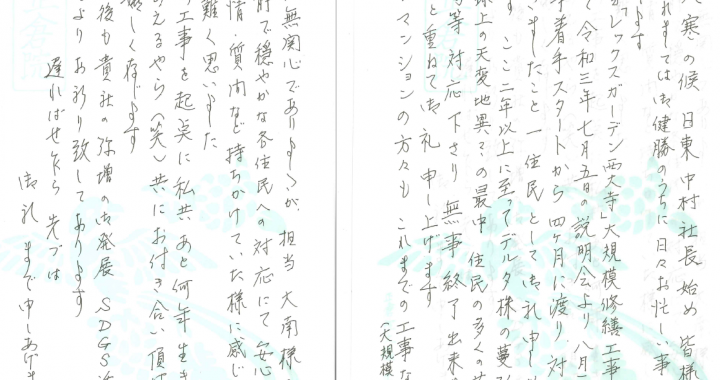 寒の候 日東中村社長始め 皆様
れましては御健勝のうちに日々お忙しい事
ます
レックスガーデン西大寺」大規模修繕工事
て令和三年七月五日の説明会より 八月
着手スタートから四ケ月に渡り、対
ましたこと 一住民として御礼申し
す ここ二年以上に至ってデルタ株の蔓
球上の天変地異々の最中 住民の多くの
等対応下さり 無事終了出来
と重ねて御礼申し上げます
マンションの方々も これまでの工事な
(大規模
無関心でありますが、担当 大南様
前で穏やかな各住民への対応にて安心
情・質問など持ちかけていた様に感じ
難く思いました
工事を起点に私共あと何年生き
えるやら(笑)共にお付き合い頂け
しく存じます
後も貴社の弥増の御発展 SDGS
よりお祈り致しております
遅ればせながら 先づは
御礼まで申しあげ